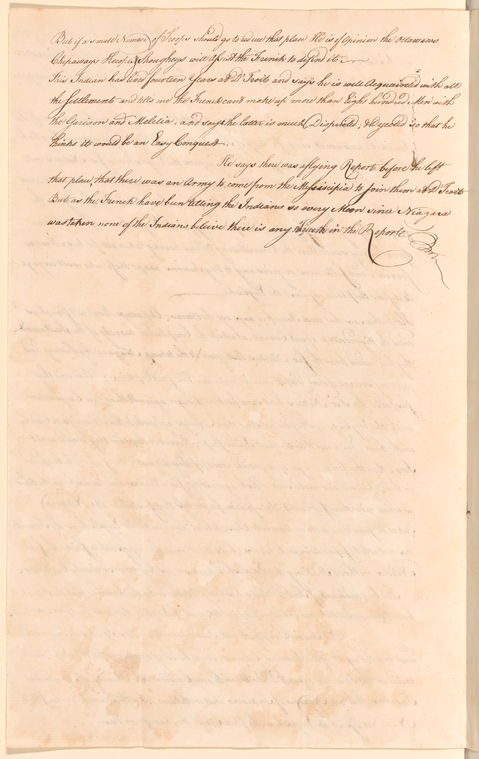 But if a small Number of Troops should go to reduce that place He is of Opinion the Ottawaws
Chipaways & will assist the French to defend it.
This Indian has lived fourteen Years at D'Troit and says he is well Acquainted with all
the Settlement and tells me the French cant make up more than Eight hundred Men with
the Garison and Melitia, and says the latter is much Dispirited, so that he
thinks it would be an Easy Conquest.
He says there was a flying Report before he left
that place, that there was an Army to come from the Messicipia to join them at D'Troit
But as the French have been telling the Indians so every Moon since Niagara
was taken none of the Indians beleive there is any Trueth in the Reporte